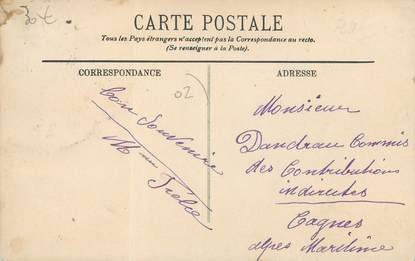 30€
CARTE POSTALE
Tous les Pays étrangers n'acceptent pas la Correspondance au recto.
(Se renseigner à la Poste).
CORRESPONDANCE
02
Bon Souvenir
ADRESSE
Monsieur
Dandrau Commis
des Contributions
indirectes
Cagnes
Alpes Maritime